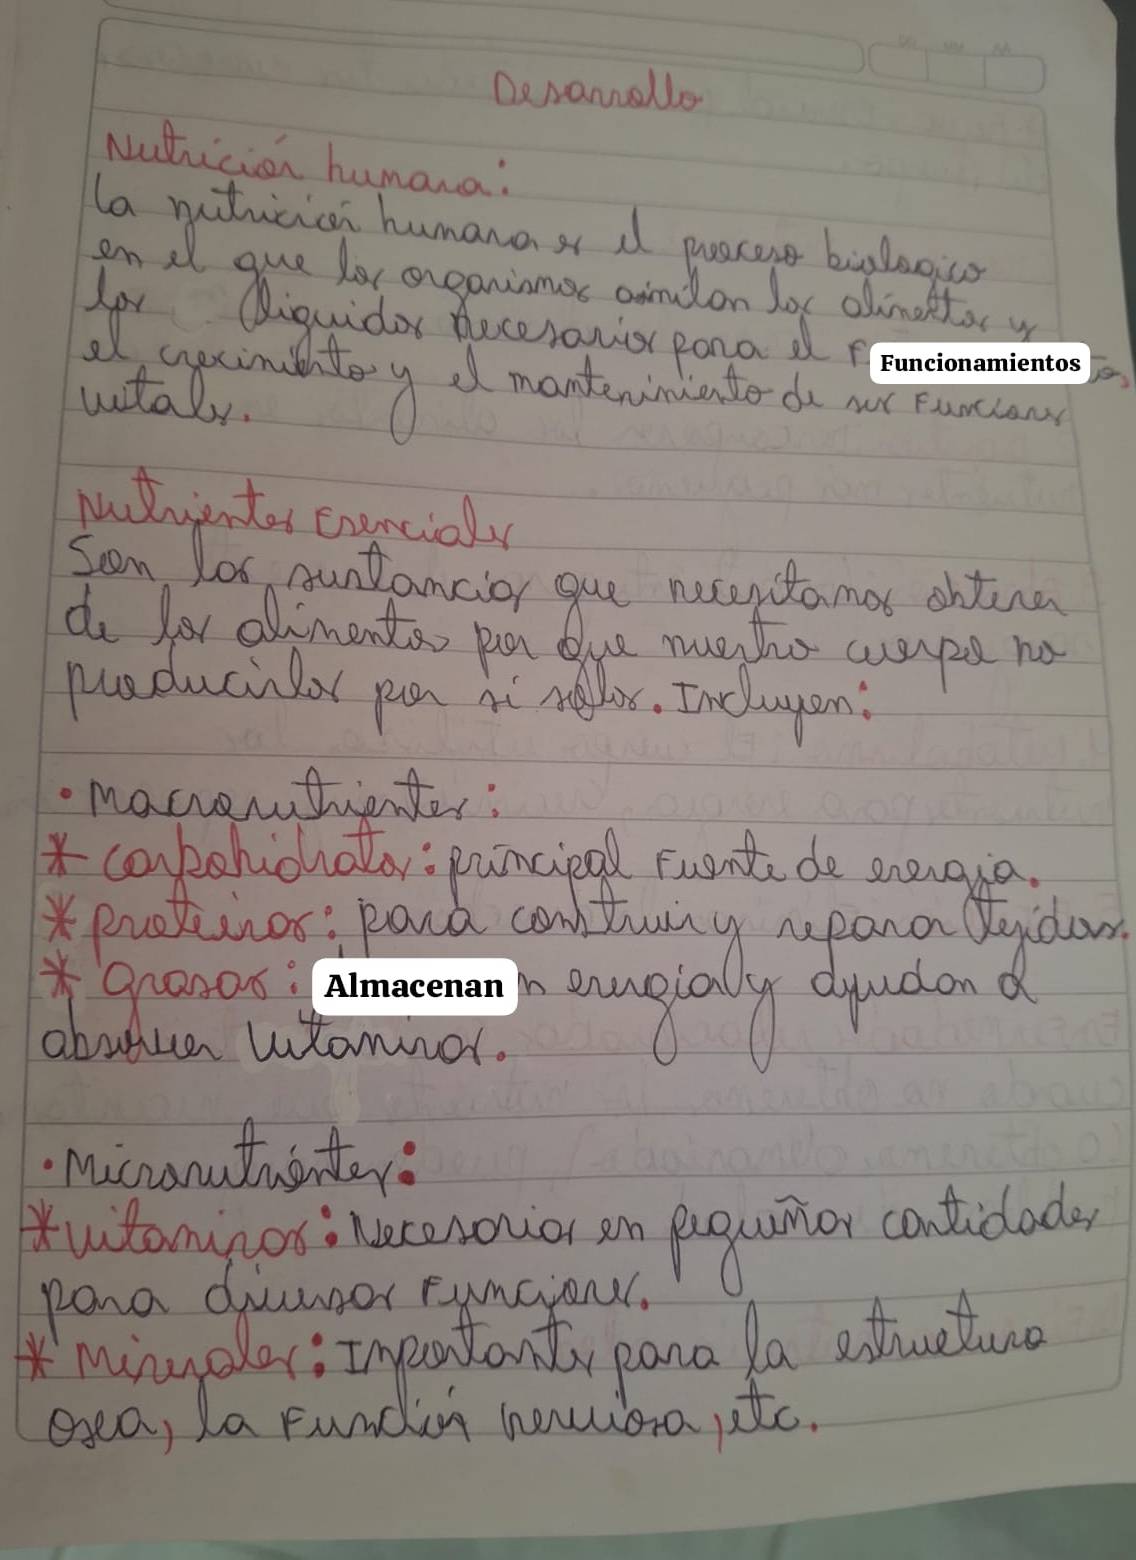 Desarrollo
Nutrición humana:
La nutrición humana es el proceso biologico
en el que los organismos asimilan los alimentos y
los liquidos necesarios para el Funcionamientos
el crecimiento y el mantenimiento de sus Funciones
vitales.
Nutrientes Esenciales
Son las sustancias que necesitamos obtener
de los alimentos por que nuestro cuerpo no
producirlos por si solos. Incluyen:
• Macronutrientes:
* carbohidratos: principal Fuente de energia.
* proteinas: para construir y reparar tejidos.
* Grasas: Almacenan energia y ayudan a
absorver vitaminas.
• Micronutrientes:
* vitaminas: Necesarias en pequeñas cantidades
para diversas Funciones.
* Minerales: Importantes para la estructura
osea, la Función nerviosa, etc.